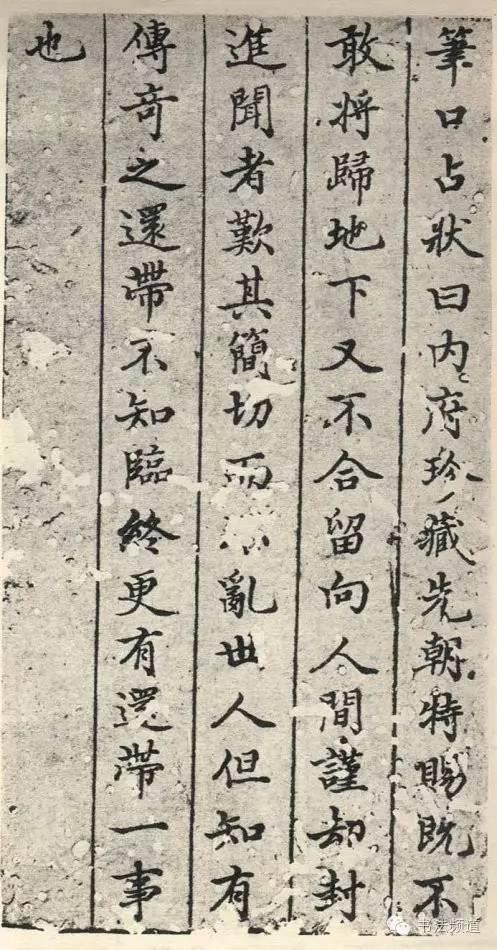 筆口占狀曰内府珍藏先朝特賜既不
敢將歸地下又不合留向人間謹却封
進聞者歎其簡切而不亂世人但知有
傳奇之還帶不知臨終更有還帶一事
也
书法频道